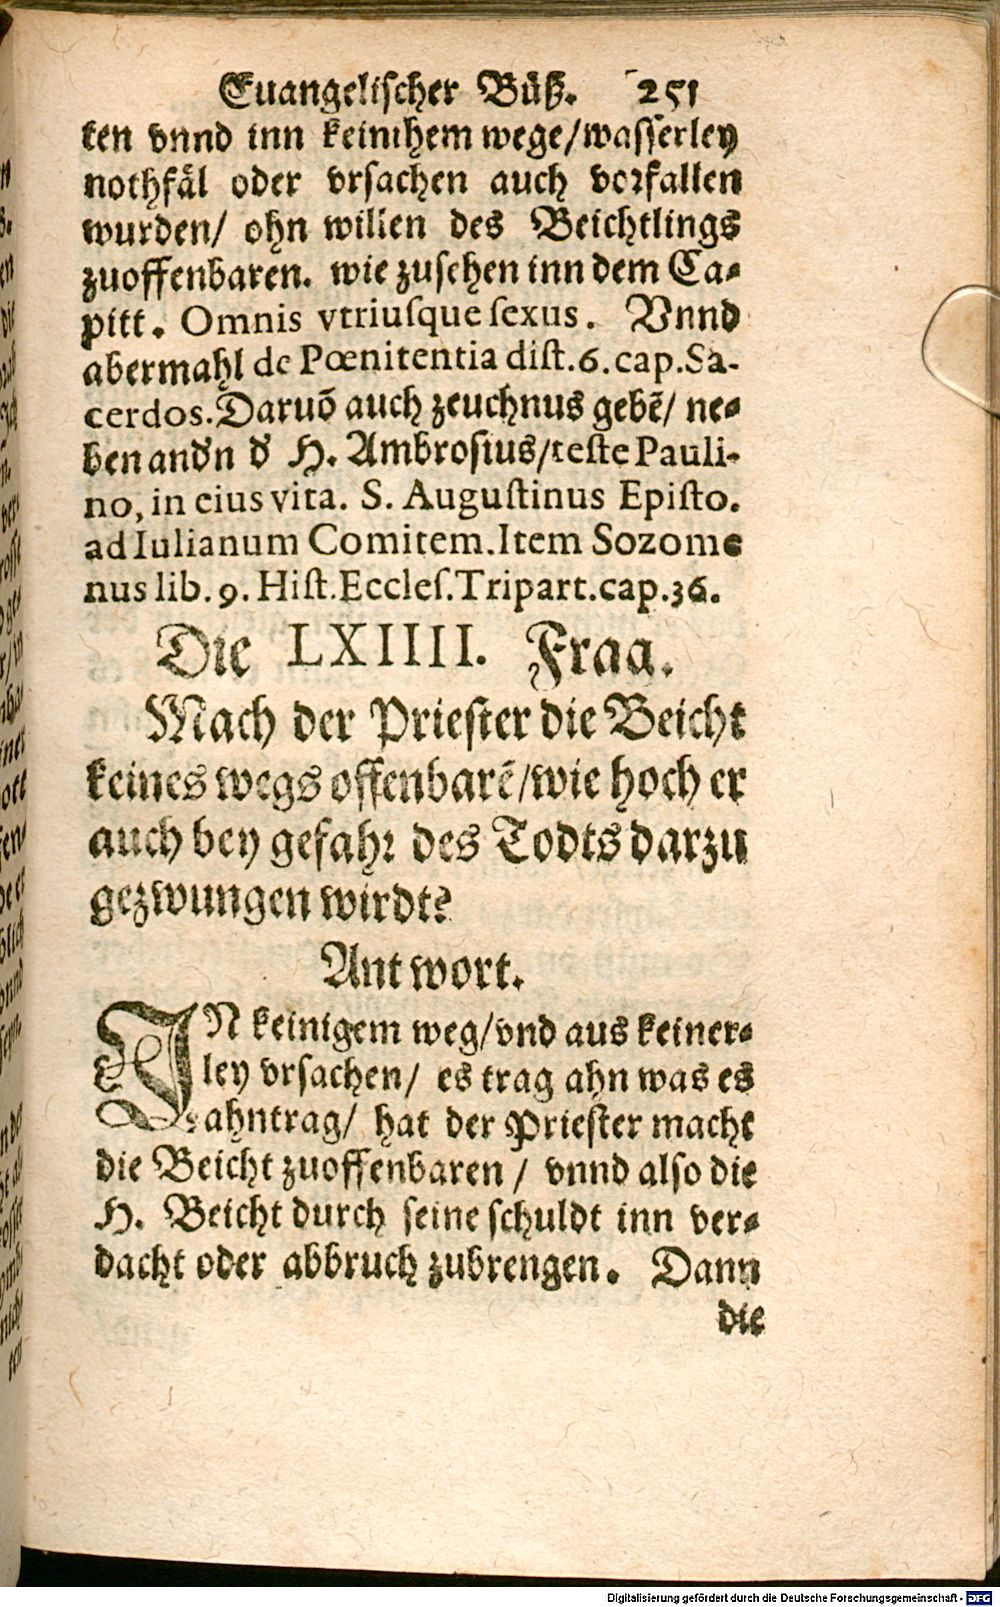 Euangelischer Buͤß. 251
ten vnnd inn keinthem wege/wasserley
nothfaͤl oder vrsachen auch vorfallen
wurden/ ohn willen des Beichtlings
zuoffenbaren. wie zusehen inn dem Ca-
pitt. Omnis vtriusque sexus. Vnnd
abermahl de Pœnitentia dist. 6. cap. Sa-
cerdos. Daruõ auch zeuchnus gebẽ/ ne-
ben andn d H. Ambrosius/teste Pauli-
no, in eius vita. S. Augustinus Episto.
ad Iulianum Comitem. Item Sozome
nus lib. 9. Hist. Eccles. Tripart. cap. 36.
Die LXIIII. Frag.
Mach der Priester die Beicht
keines wegs offenbarẽ/wie hoch er
auch bey gefahr des Todts darzu
gezwungen wirdt?
Antwort.
IN keinigem weg/vnd aus keiner-
ley vrsachen/ es trag ahn was es
ahntrag/ hat der Priester macht
die Beicht zuoffenbaren/ vnnd also die
H. Beicht durch seine schuldt inn ver-
dacht oder abbruch zubrengen. Dann
die
Digitalisierung gefördert durch die Deutsche Forschungsgemeinschaft - DFG